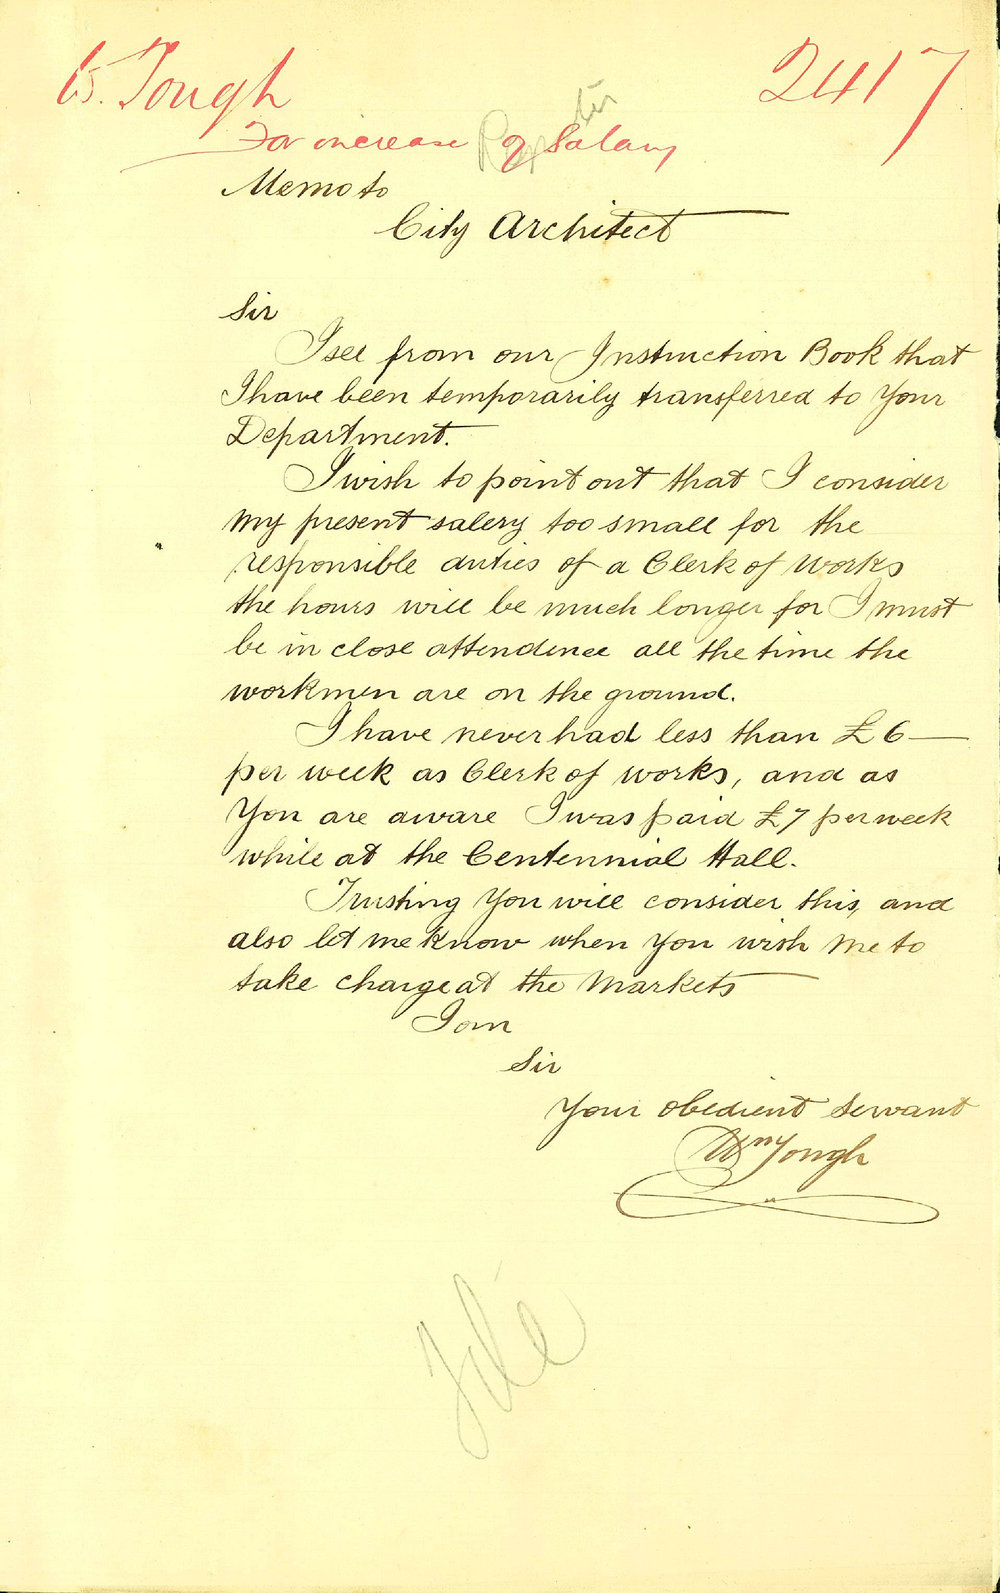 W. Tough 2417
For increase of Salary
Register
Memo to
City Architect
Sir
I see from our Instruction Book that
I have been temporarily transferred to Your
Department.
I wish to point out that I consider
my present salery too small for the
responsible duties of a Clerk of Works
the hours will be much longer for I must
be in close attendence all the time the
workmen are on the ground.
I have never had less than £6 —
per week as Clerk of works, and as
You are aware I was paid £7 per week
while at the Centennial Hall.
Trusting You will consider this, and
also let me know when you wish me to
take charge at the Markets
I am
Sir
Your obedient servant
Wm Tough
File